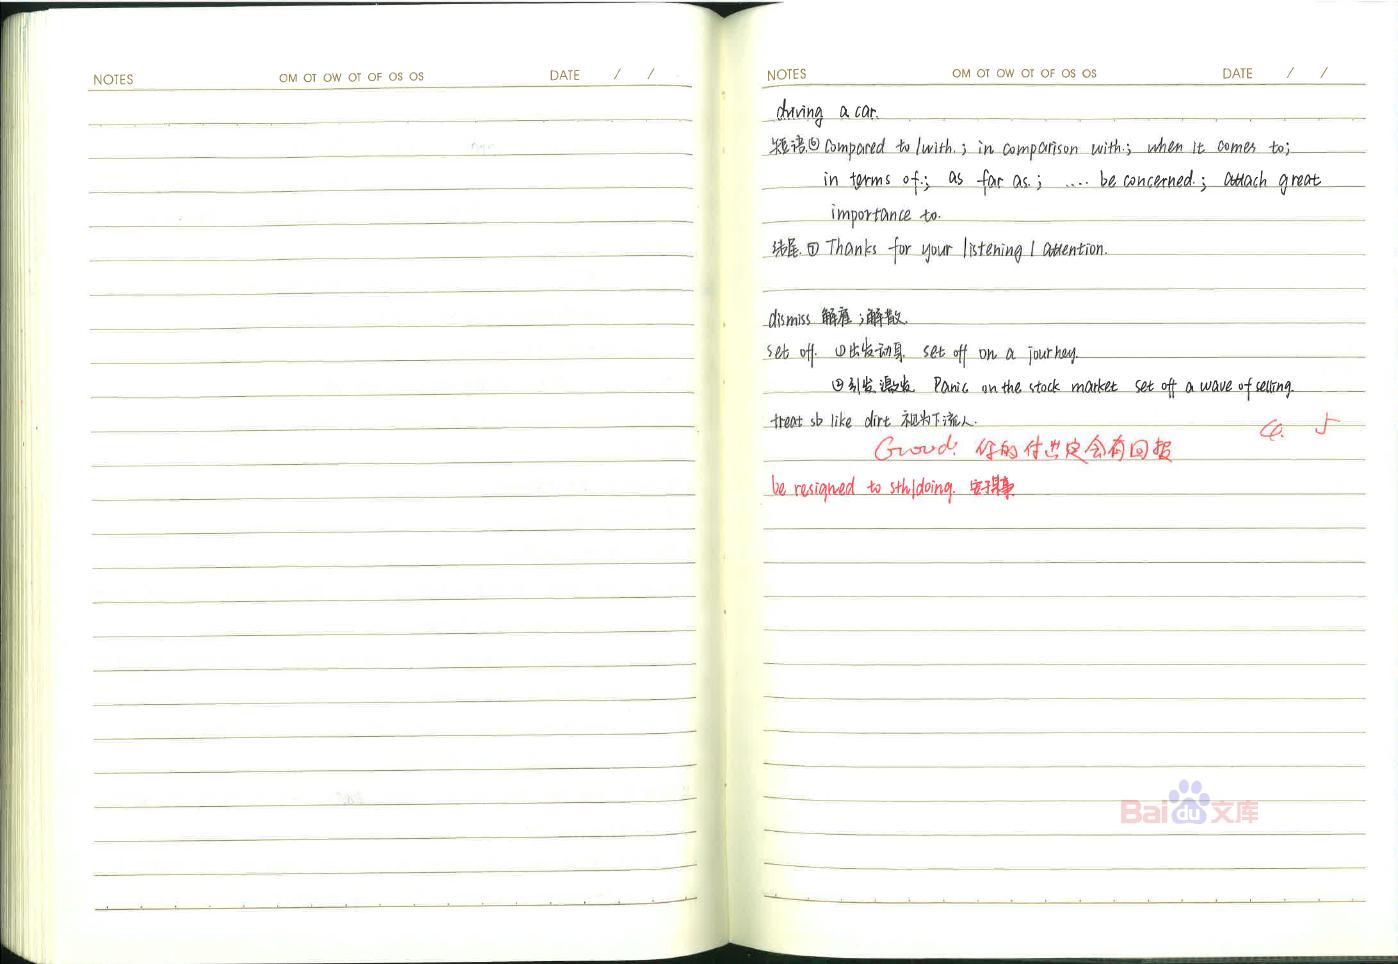 NOTES OM OT OW OT OF OS OS DATE / /
NOTES OM OT OW OT OF OS OS DATE / /
driving a car.
短语 ⑥ Compared to / with.; in comparison with.; when it comes to;
in terms of.; as far as.; .... be concerned.; attach great
importance to.
结尾. ① Thanks for your listening / attention.
dismiss 解雇;解散.
set off. ①出发动身. set off on a journey.
②引发激发. Panic on the stock market set off a wave of selling.
treat sb like dirt 视为下流人.
Good! 你的付出定会有回报
be resigned to sth/doing. 安于某事
Baidu文库